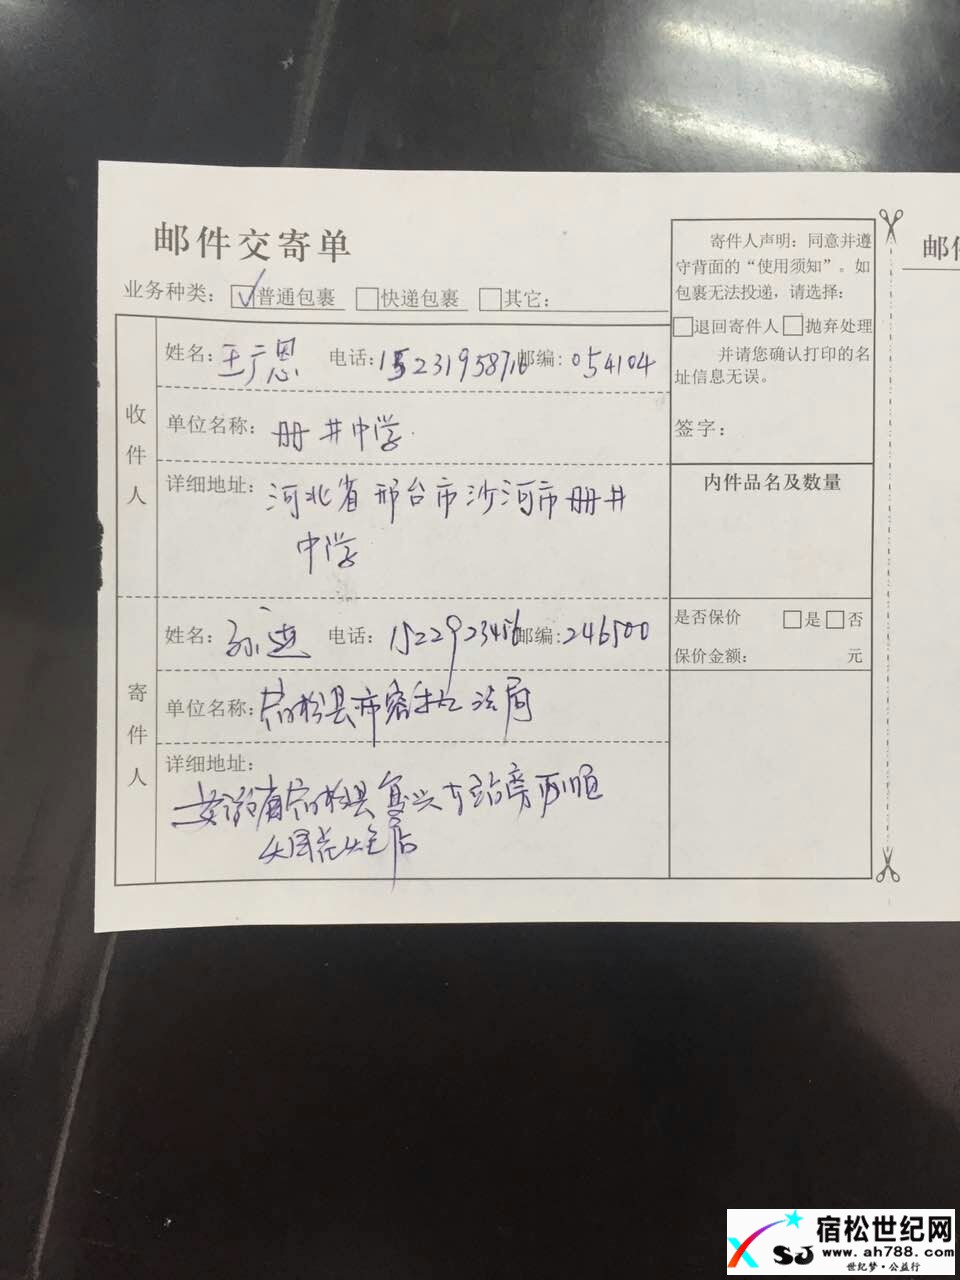 邮件交寄单
业务种类：☑普通包裹 □快递包裹 □其它：
收件人
姓名：王广恩 电话：15231958716 邮编：054104
单位名称：册井中学
详细地址：河北省邢台市沙河市册井
中学
寄件人
姓名：孙 电话：15229923456 邮编：246500
单位名称：宿松县市容执法局
详细地址：
安徽省宿松县复兴 站旁

寄件人声明：同意并遵
守背面的“使用须知”。如
包裹无法投递，请选择：
□退回寄件人□抛弃处理
并请您确认打印的名
址信息无误。
签字：
内件品名及数量
是否保价 □是□否
保价金额： 元
邮件
宿松世纪网
XSJ www.ah788.com
世纪梦·公益行